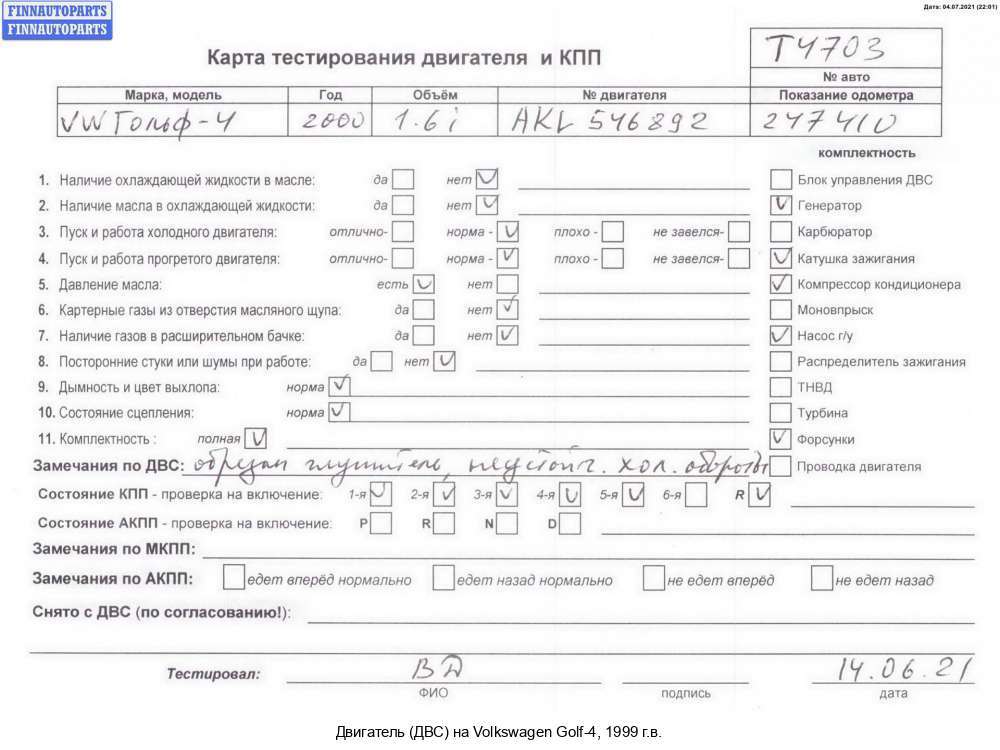 FINNAUTOPARTS
FINNAUTOPARTS
Дата: 04.07.2021 (22:01)
Карта тестирования двигателя и КПП
T4703
№ авто
Марка, модель Год Объём № двигателя Показание одометра
VW Гольф-4 2000 1.6i AKL 546892 247410
комплектность
1. Наличие охлаждающей жидкости в масле: да нет Блок управления ДВС
2. Наличие масла в охлаждающей жидкости: да нет Генератор
3. Пуск и работа холодного двигателя: отлично- норма - плохо - не завелся- Карбюратор
4. Пуск и работа прогретого двигателя: отлично- норма - плохо - не завелся- Катушка зажигания
5. Давление масла: есть нет Компрессор кондиционера
6. Картерные газы из отверстия масляного щупа: да нет Моновпрыск
7. Наличие газов в расширительном бачке: да нет Насос г/у
8. Посторонние стуки или шумы при работе: да нет Распределитель зажигания
9. Дымность и цвет выхлопа: норма ТНВД
10. Состояние сцепления: норма Турбина
11. Комплектность : полная Форсунки
Замечания по ДВС: обрезан глушитель, неустойч. хол. обороты Проводка двигателя
Состояние КПП - проверка на включение: 1-я 2-я 3-я 4-я 5-я 6-я R
Состояние АКПП - проверка на включение: P R N D
Замечания по МКПП:
Замечания по АКПП: едет вперёд нормально едет назад нормально не едет вперёд не едет назад
Снято с ДВС (по согласованию!):
Тестировал: ВД 14.06.21
ФИО подпись дата
Двигатель (ДВС) на Volkswagen Golf-4, 1999 г.в.